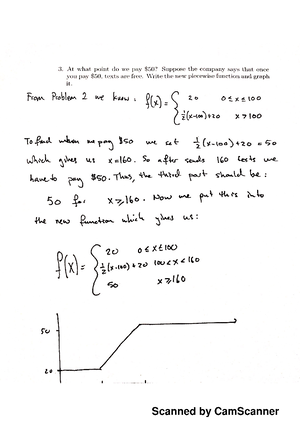 3. At what point do we pay $50? Suppose the company says that once
you pay $50, texts are free. Write the new piecewise function and graph
it.
From Problem 2 we know: f(x) = { 20 0≤x≤100
½(x-100)+20 x>100
To find when we pay $50 we set ½(x-100)+20=50
which gives us x=160. So after sends 160 texts we
have to pay $50. Thus, the third part should be:
50 for x≥160. Now we put this into
the new function which gives us:
f(x) = { 20 0≤x≤100
½(x-100)+20 100<x<160
50 x≥160
50
20
Scanned by CamScanner